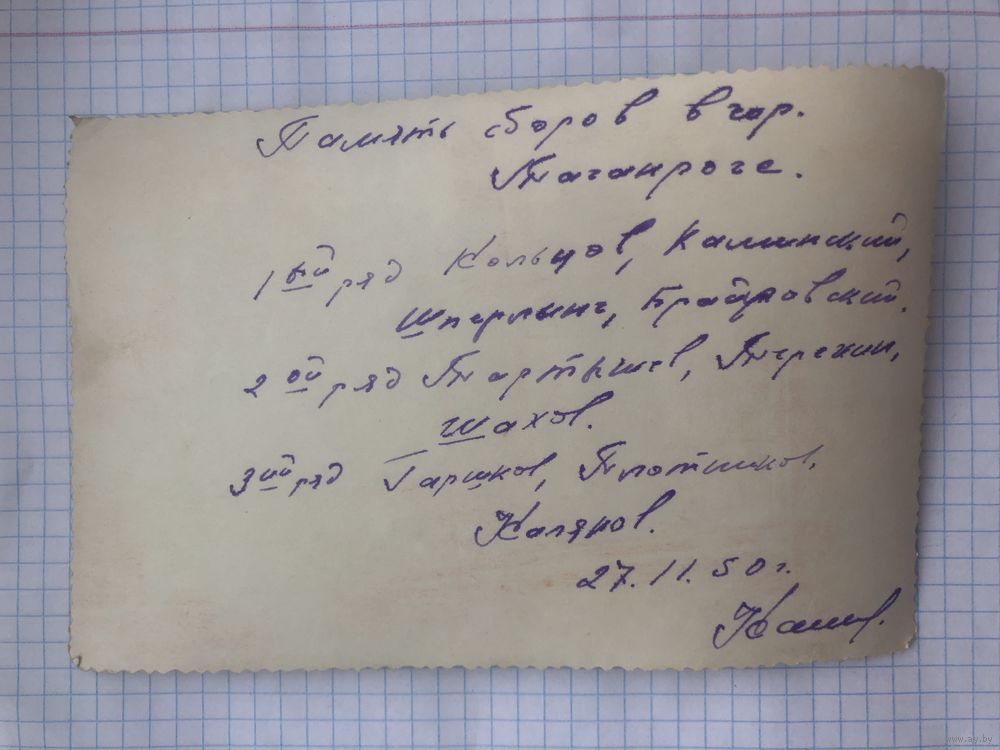 Память сборов в гор.
Таганроге.
1ый ряд Кольцов, Каминский,
Шперлынг,
2ой ряд Тартышев, Терехин,
Шахов.
3ий ряд Гаршков, Плотников,
Калянов.
27.11.50 г.
www.ay.by